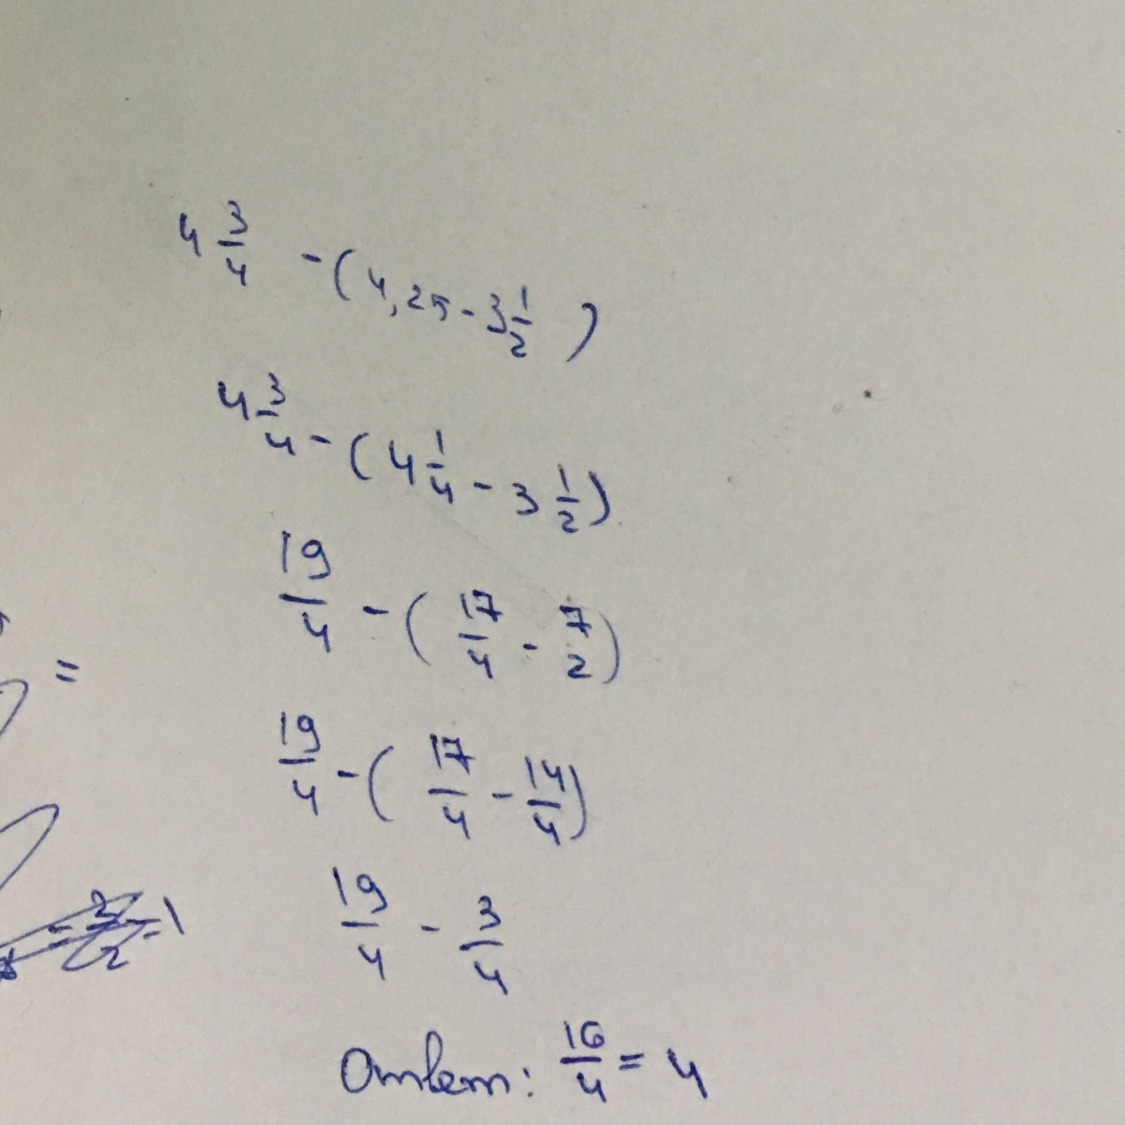 4 3/4 - (4,25 - 3 1/2)
4 3/4 - (4 1/4 - 3 1/2)
19/4 - (17/4 - 7/2)
=
19/4 - (17/4 - 14/4)
19/4 - 3/4
Ответ: 16/4 = 4